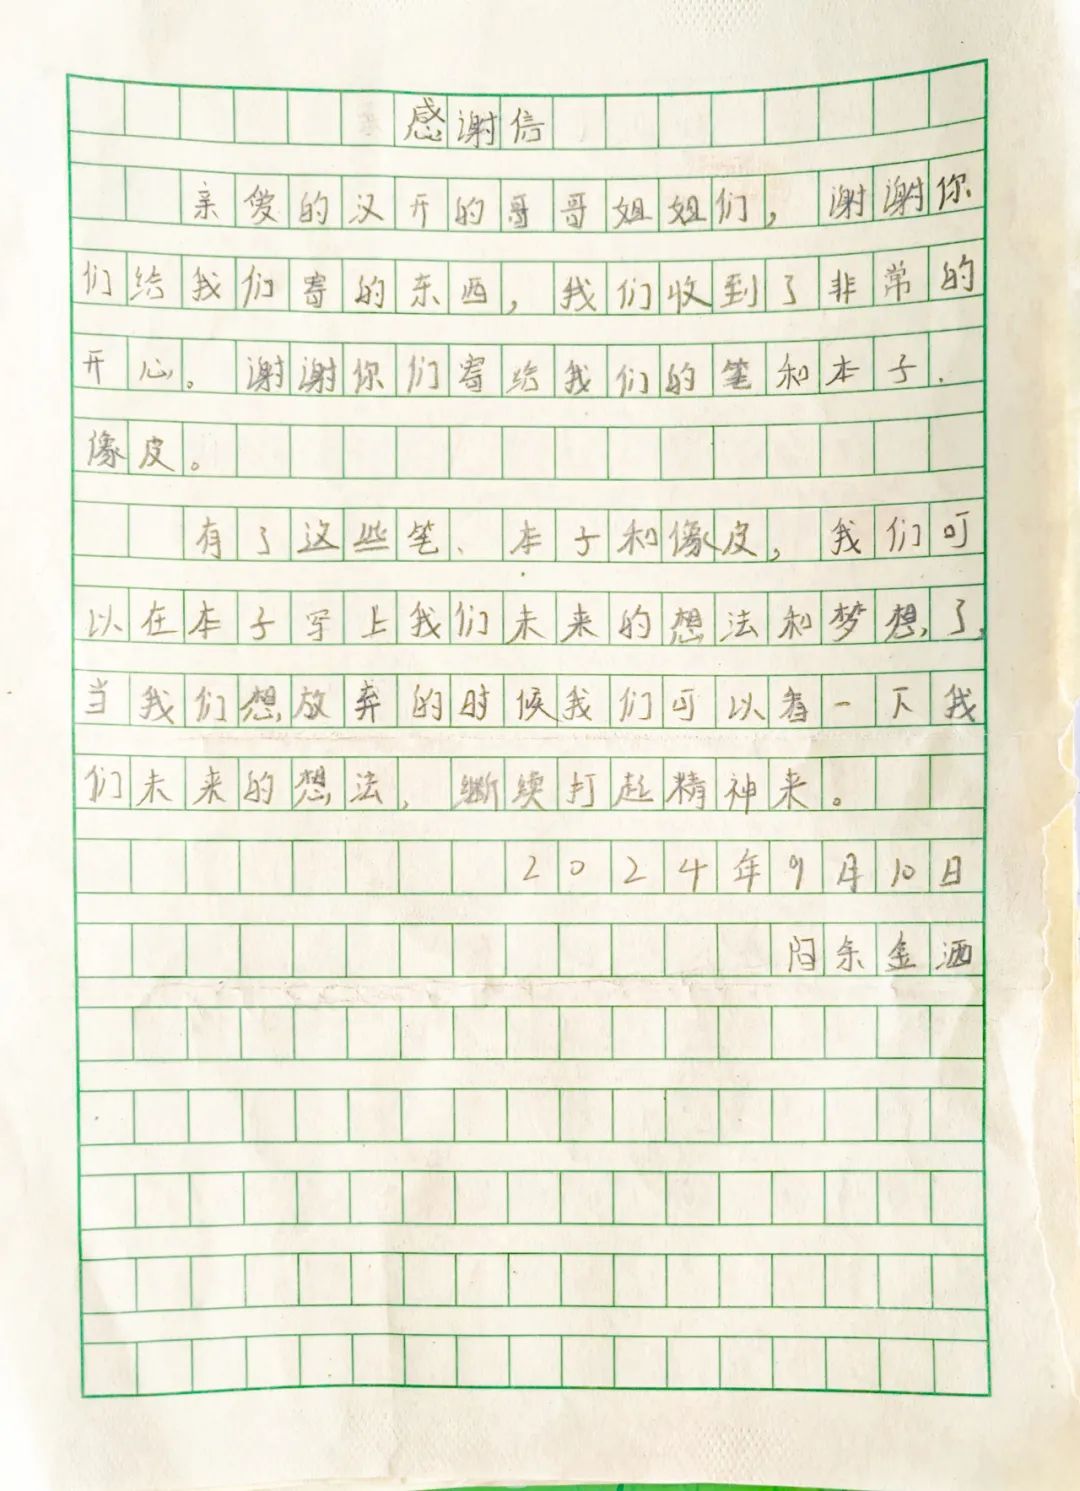 感谢信
亲爱的汉开的哥哥姐姐们，谢谢你
们给我们寄的东西，我们收到了非常的
开心。谢谢你们寄给我们的笔和本子.
像皮。
有了这些笔、本子和像皮，我们可
以在本子写上我们未来的想法和梦想了,
当我们想放弃的时候我们可以看一下我
们未来的想法，断续打起精神来。
2024年9月10日
阳余金洒